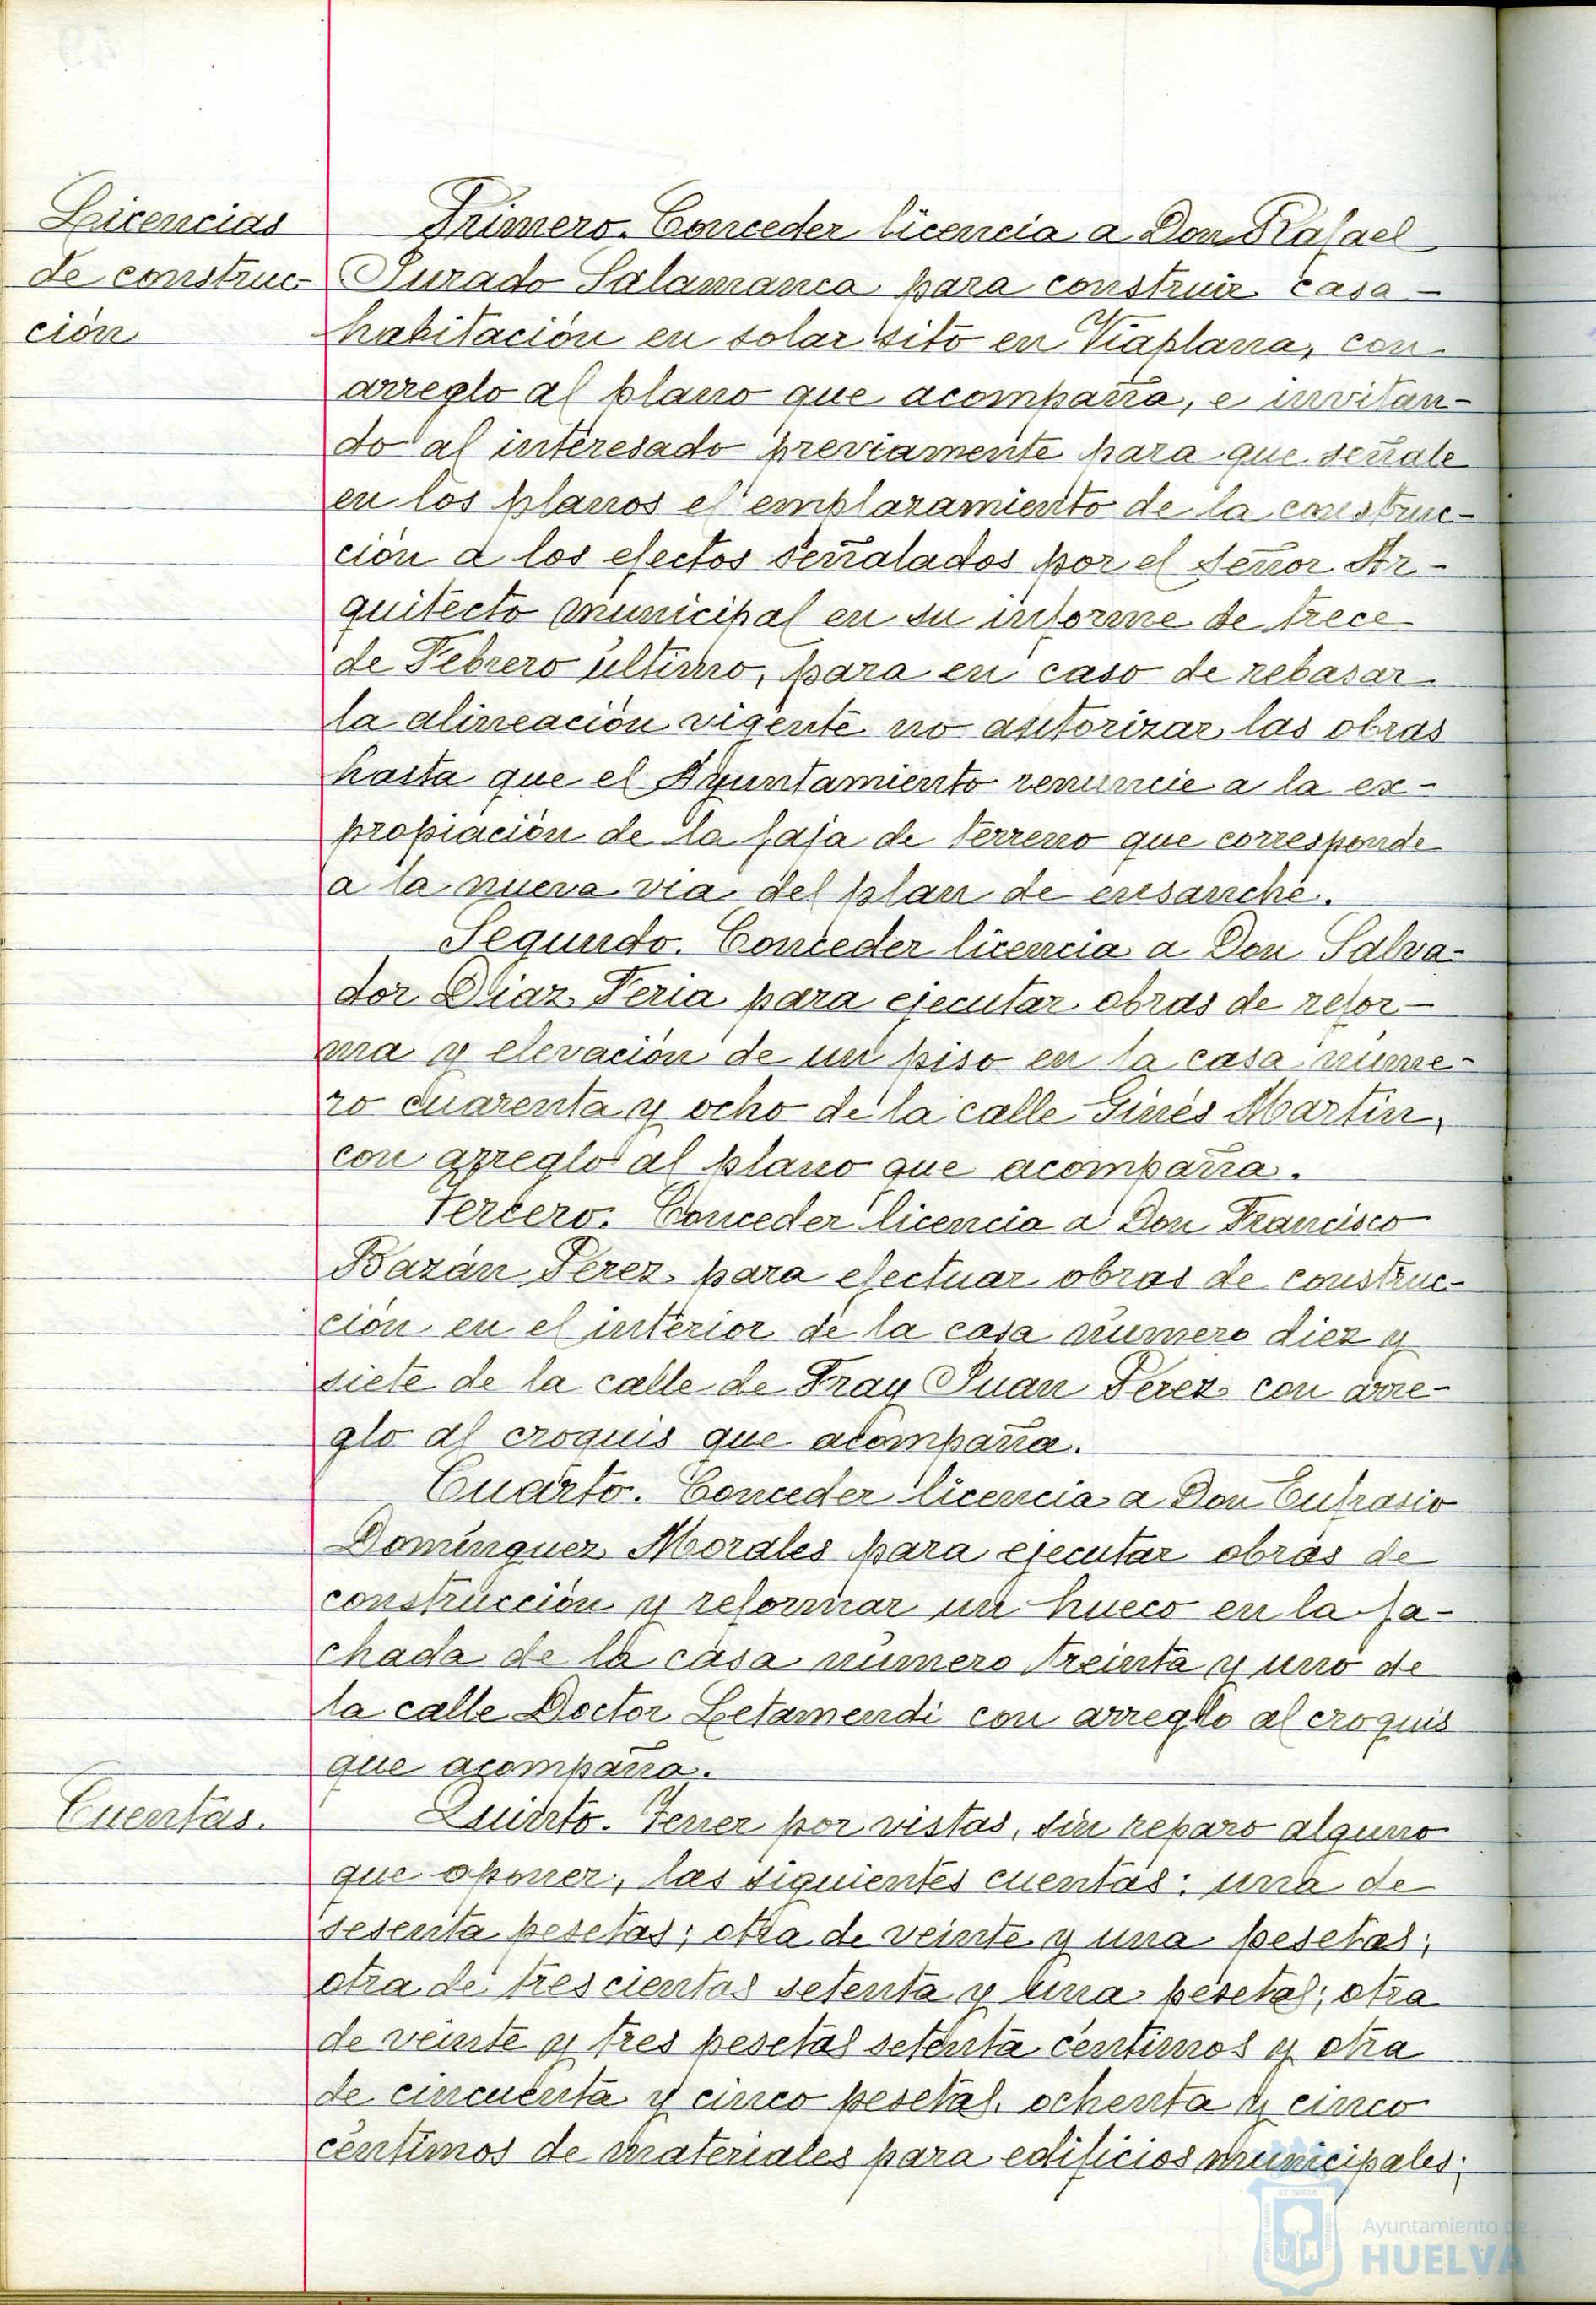 Licencias
de construc-
ción
Primero. Conceder licencia a Don Rafael
Jurado Salamanca para construir casa-
habitación en solar sito en Viaplana, con
arreglo al plano que acompaña, e invitan-
do al interesado previamente para que señale
en los planos el emplazamiento de la construc-
ción a los efectos señalados por el Señor Ar-
quitecto municipal en su informe de trece
de Febrero último, para en caso de rebasar
la alineación vigente no autorizar las obras
hasta que el Ayuntamiento renuncie a la ex-
propiación de la faja de terreno que corresponde
a la nueva vía del plan de ensanche.
Segundo. Conceder licencia a Don Salva-
dor Díaz Feria para ejecutar obras de refor-
ma y elevación de un piso en la casa núme-
ro cuarenta y ocho de la calle Ginés Martín,
con arreglo al plano que acompaña.
Tercero. Conceder licencia a Don Francisco
Bazán Pérez para efectuar obras de construc-
ción en el interior de la casa número diez y
siete de la calle de Fray Juan Pérez con arre-
glo al croquis que acompaña.
Cuarto. Conceder licencia a Don Eufrasio
Domínguez Morales para ejecutar obras de
construcción y reformar un hueco en la fa-
chada de la casa número treinta y uno de
la calle Doctor Letamendi con arreglo al croquis
que acompaña.
Cuentas.
Quinto. Tener por vistas, sin reparo alguno
que oponer, las siguientes cuentas: una de
sesenta pesetas; otra de veinte y una pesetas;
otra de trescientas setenta y una pesetas; otra
de veinte y tres pesetas setenta céntimos y otra
de cincuenta y cinco pesetas ochenta y cinco
céntimos de materiales para edificios municipales;
Ayuntamiento de
HUELVA